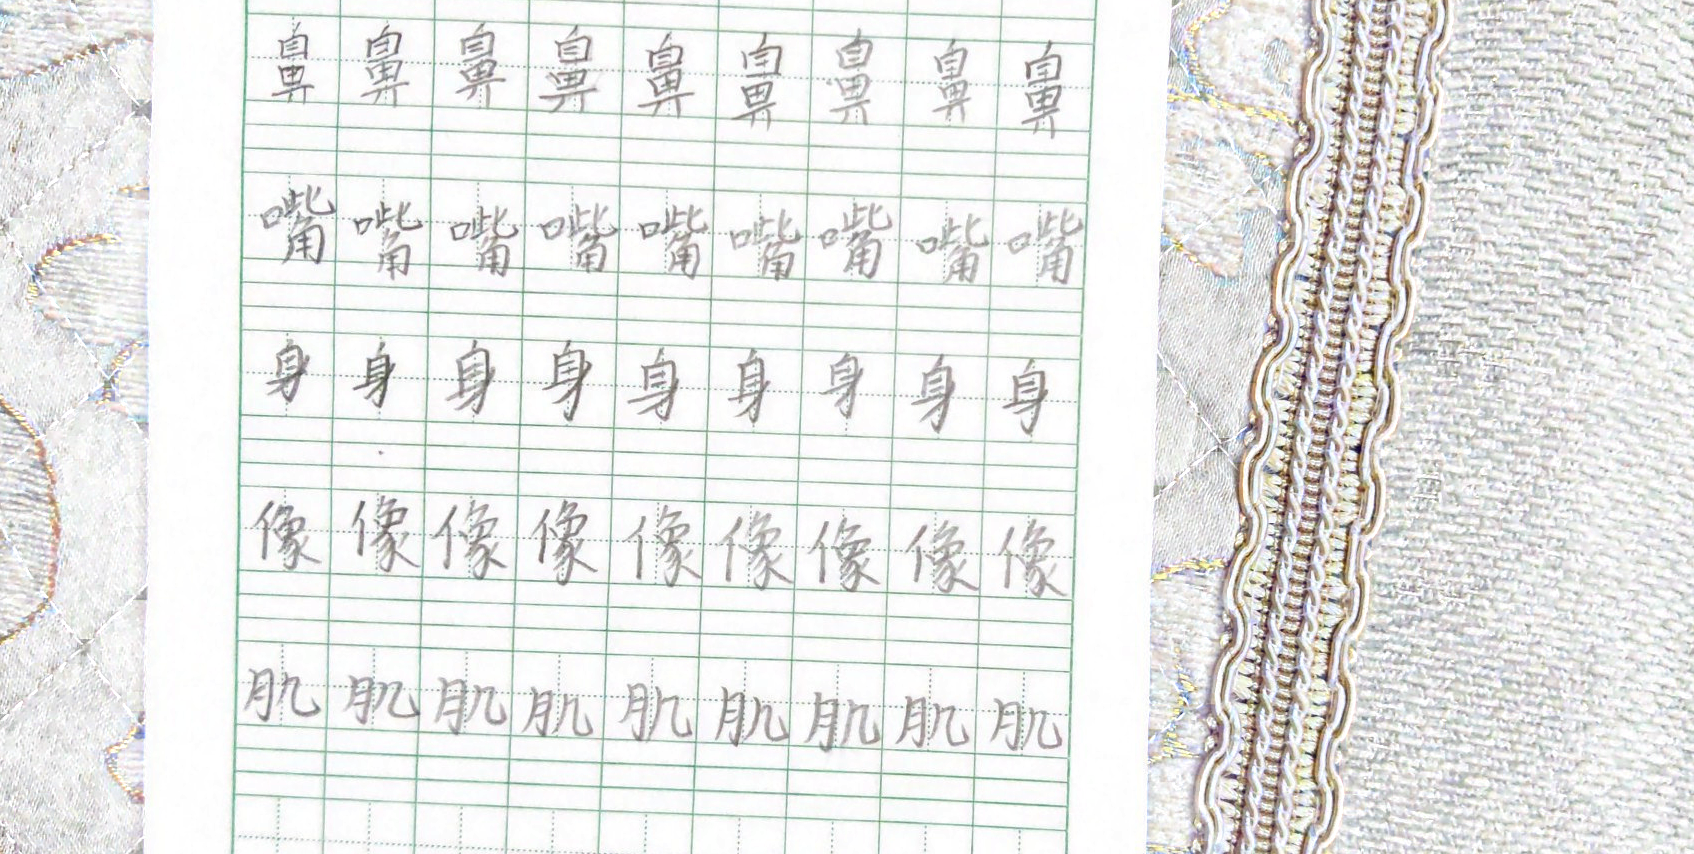 鼻鼻鼻鼻鼻鼻鼻鼻鼻
嘴嘴嘴嘴嘴嘴嘴嘴嘴
身身身身身身身身身
像像像像像像像像像
肌肌肌肌肌肌肌肌肌